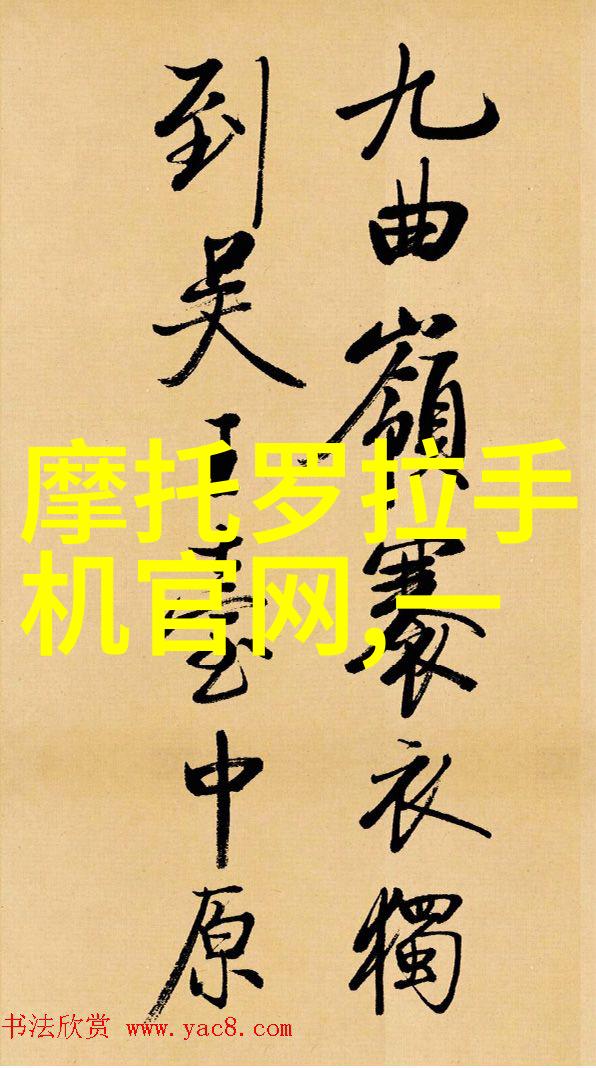 九曲嶺褰衣獨
到吴王臺中原
摩托罗拉手
机官网,一
书法欣赏 www.yac8.com